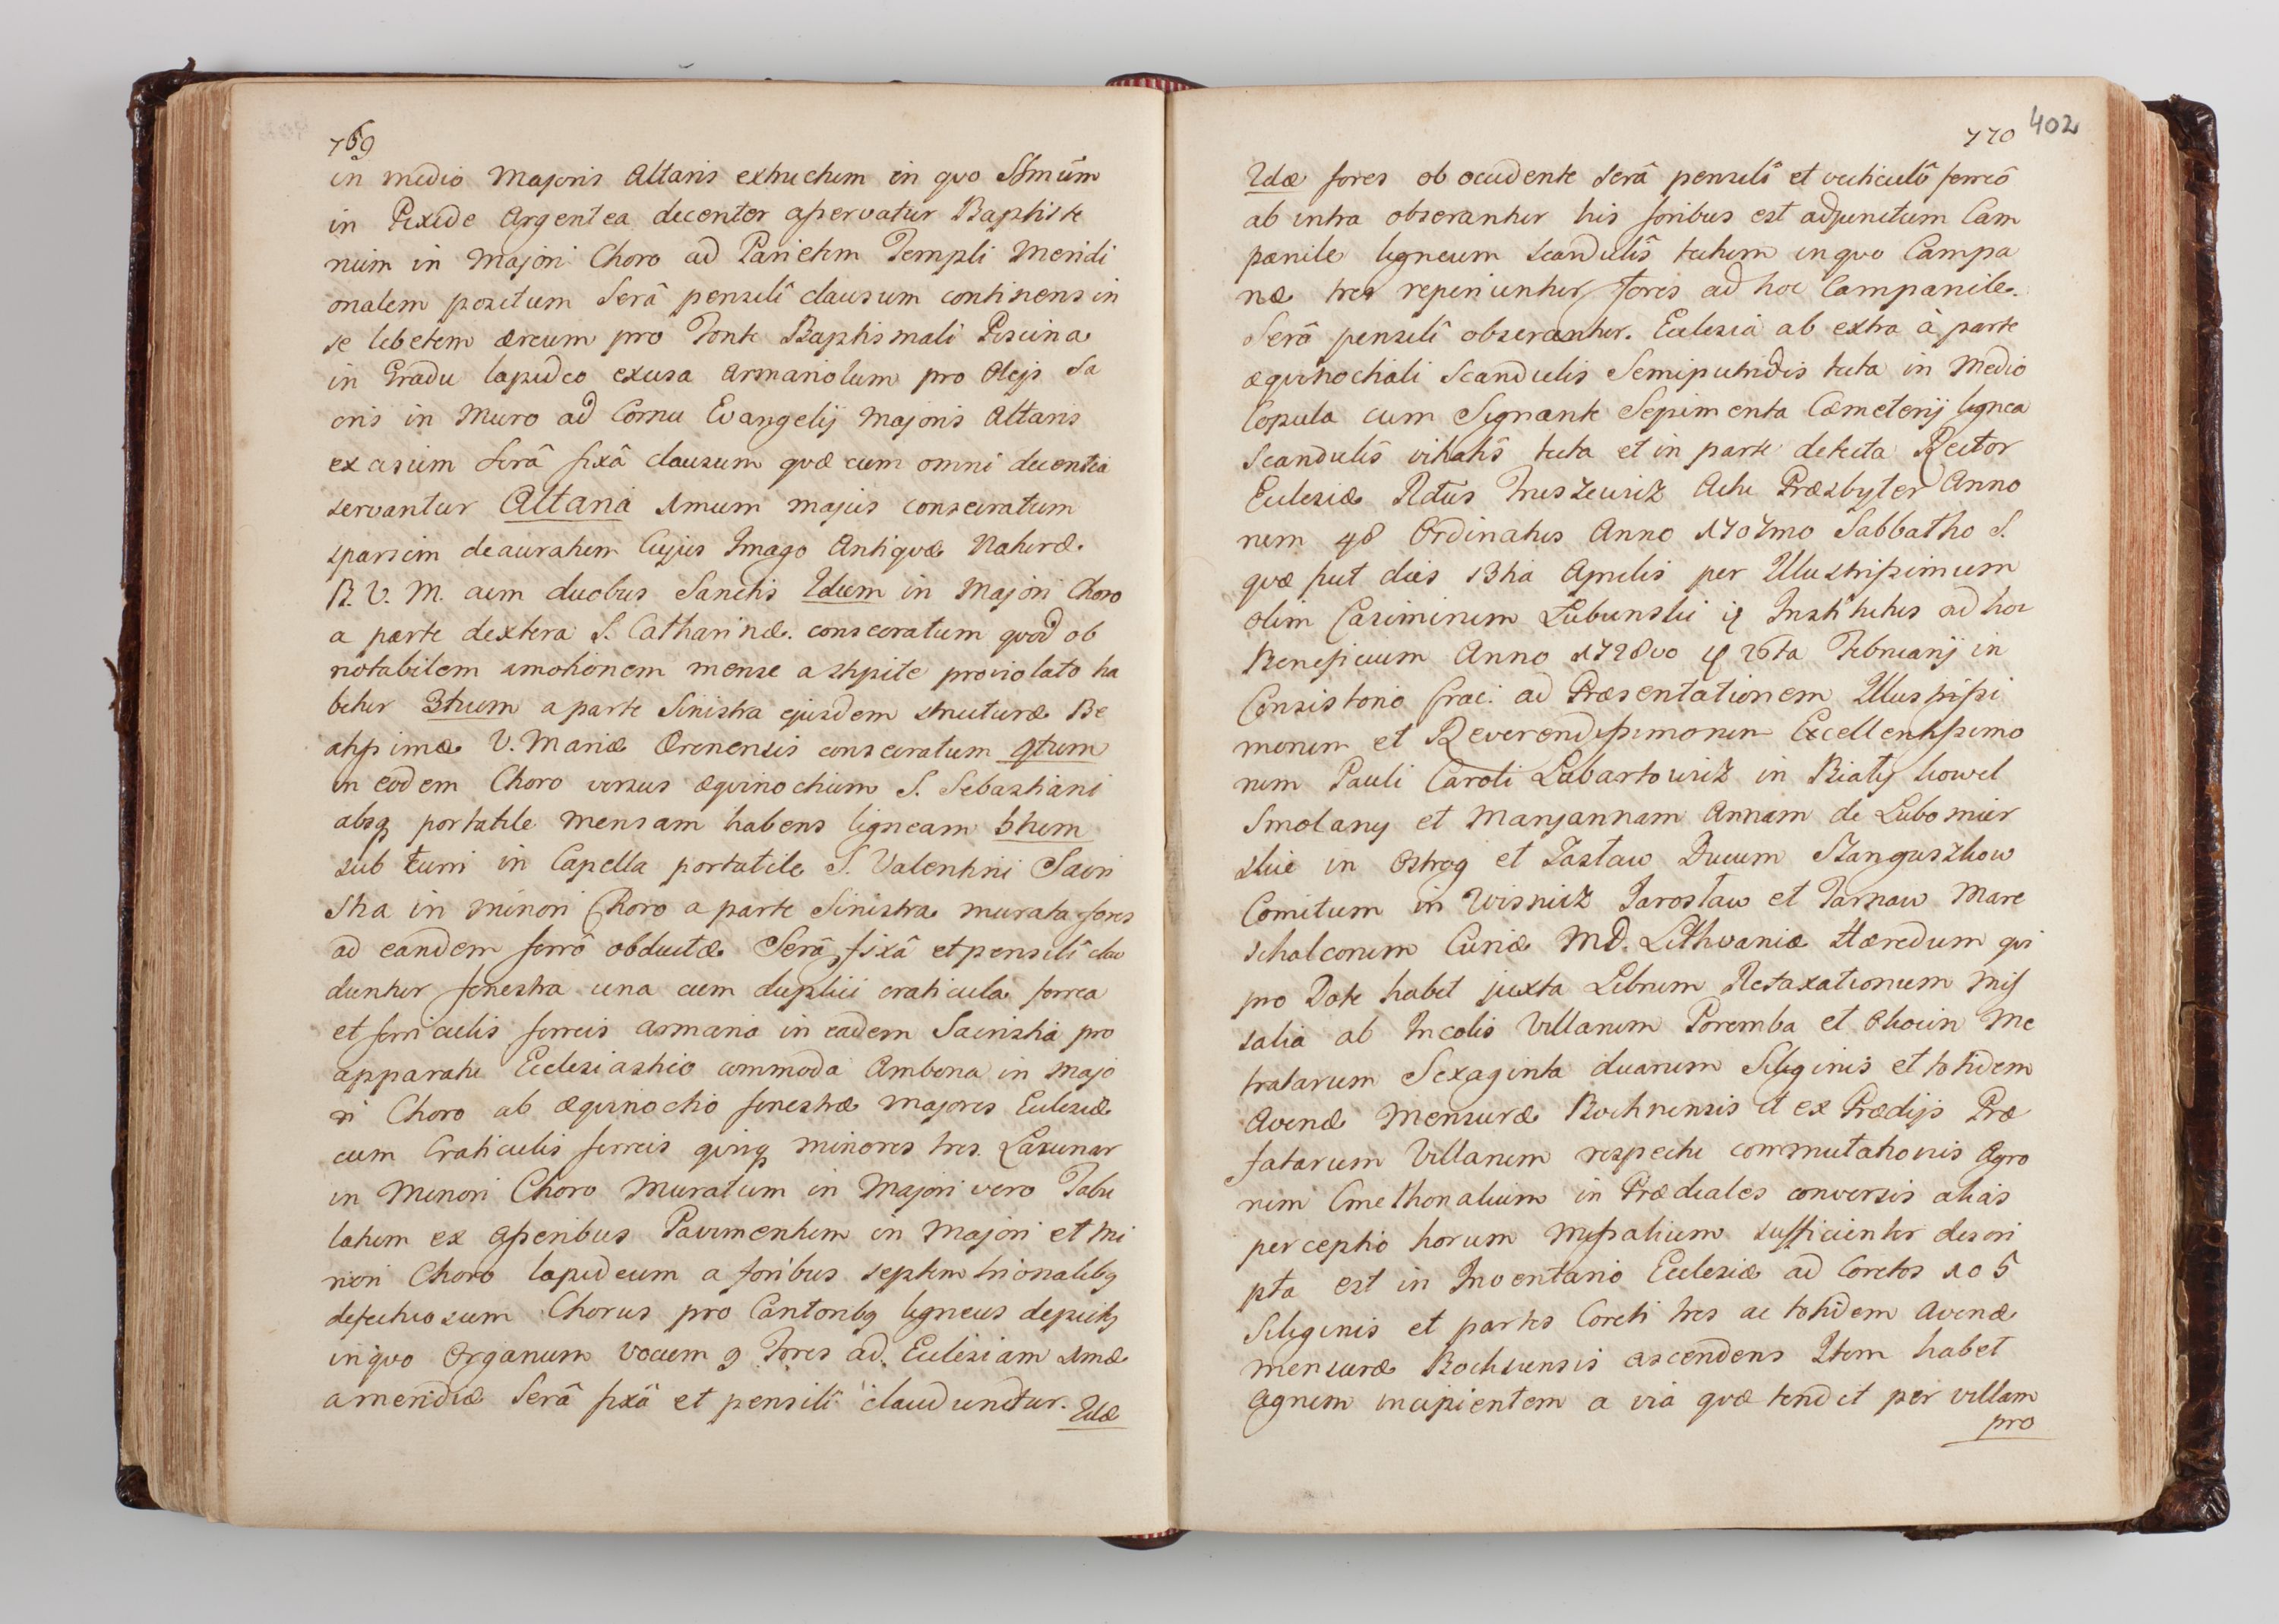 769
in medio Majoris Altaris extructum in quo SSmum
in Pixide Argentea decenter asservatur Baptiste
rium in Majori Choro ad Parietem Templi Meridi
onalem positum Serâ pensili clausum continens in
se lebetem æreum pro Fonte Baptismali Piscina
in Gradu lapideo excisa Armariolum pro Olejs Sa
cris in Muro ad Cornu Evangelij Majoris Altaris
excisum serâ fixâ clausum quæ cum omni decentia
servantur Altaria 1mum majus consecratum
sparsim deauratum Cujus Imago Antiquæ Naturæ
B. V. M. cum duobus Sanctis 2dum in Majori Choro
a parte dextera S. Catharinæ consecratum quod ob
notabilem amotionem mensæ a stipite pro violato ha
betur 3tium a parte Sinistra ejusdem structuræ Be
atissimæ V. Mariæ consecratum 4tum
in eodem Choro versus æquinoctium S. Sebastiani
absq portatile mensam habens ligneam 5tum
sub turri in Capella portatile S. Valentini Sacri
stia in minori Choro a parte Sinistra murata fores
ad eandem ferrô obductæ Serâ fixâ et pensili clau
duntur fenestra una cum duplici craticula ferrea
et ferriculis ferreis armaria in eadem Sacristia pro
apparatu Ecclesiastico commoda Ambona in Majo
ri Choro ab æquinoctio fenestræ majores Ecclesiæ
cum Craticulis ferreis quinq minores tres. Lacunar
in Minori Choro Muratum in Majori vero Tabu
latum ex asseribus Pavimentum in Majori et Mi
nori Choro lapideum a foribus septemtrionalibq
defectuosum Chorus pro Cantoribq ligneus depictq
in quo Organum vocum 9 Fores ad Ecclesiam 1mæ
a meridie Serâ fixâ et pensili clauduntur. 2dæ
770 402
2dæ fores ob occidente serâ pensili et vecticulô ferreô
ab intra obserantur his foribus est adjunctum Cam
panile ligneum scandulis tectum in quo Campa
næ tres reperiuntur fores ad hoc Campanile
Serâ pensili obserantur. Ecclesia ab extra à parte
æquinoctiali Scandulis Semiputridis tecta in Medio
Copula cum Signante Sepimenta Cæmeterij lignea
Scandulis vitiatis tecta et in parte detecta Rector
Ecclesiæ Rdus Actu Præsbyter Anno
rum 48 Ordinatus Anno 1707mo Sabbatho S.
quæ fuit dies 13tia Aprilis per Illustrissimum
olim Casimirum Lubunski Institutus ad hoc
Beneficium Anno 1728vo 26ta Februarij in
Consistorio Crac: ad Præsentationem Illus
morum et Reverendissimorum Excellentissimo
rum Pauli Caroli Lubartowicz in Biały kowel
Smolany et Maryannam Annam de Lubomier
skie in Ostrog et Zasław Ducum Szanguszkow
Comitum in Wisnicz Jarosław et Tarnaw Mare
schalcorum Curiæ MD. Lithvaniæ Hæredum qui
pro Dote habet juxta Librum Retaxationum Mis
salia ab Incolis Villarum Poremba et Okocin Me
tratarum Sexaginta duarum Siliginis et totidem
Avenæ Mensuræ Bochnensis et ex Prædijs Præ
fatarum Villarum respectu commutationis Agro
rum Cmethonalium in Prædiales conversis aliàs
perceptio horum missalium sufficienter descri
pta est in Inventario Ecclesiæ ad Coretos 105
Siliginis et partes Coreti tres ac totidem Avenæ
mensuræ Bochnensis ascendens Item habet
Agrum incipientem a via quæ tendit per villam
pro